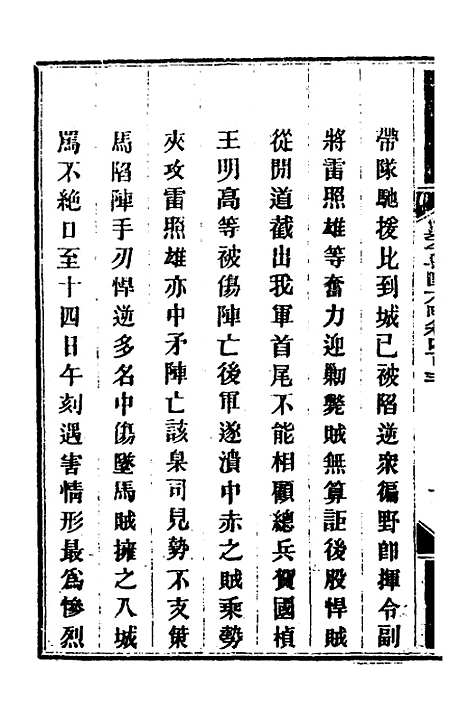 帶隊馳援比到城已被陷逆衆徧野卽揮令副
將雷照雄等奮力迎勦斃賊無算詎後股悍賊
從閒道截出我軍首尾不能相顧總兵賀國楨
王明高等被傷陣亡後軍遂潰中赤之賊乘勢
夾攻雷照雄亦中矛陣亡該臬司見勢不支策
馬陷陣手刃悍逆多名中傷墜馬賊擁之入城
罵不絕口至十四日午刻遇害情形最爲慘烈